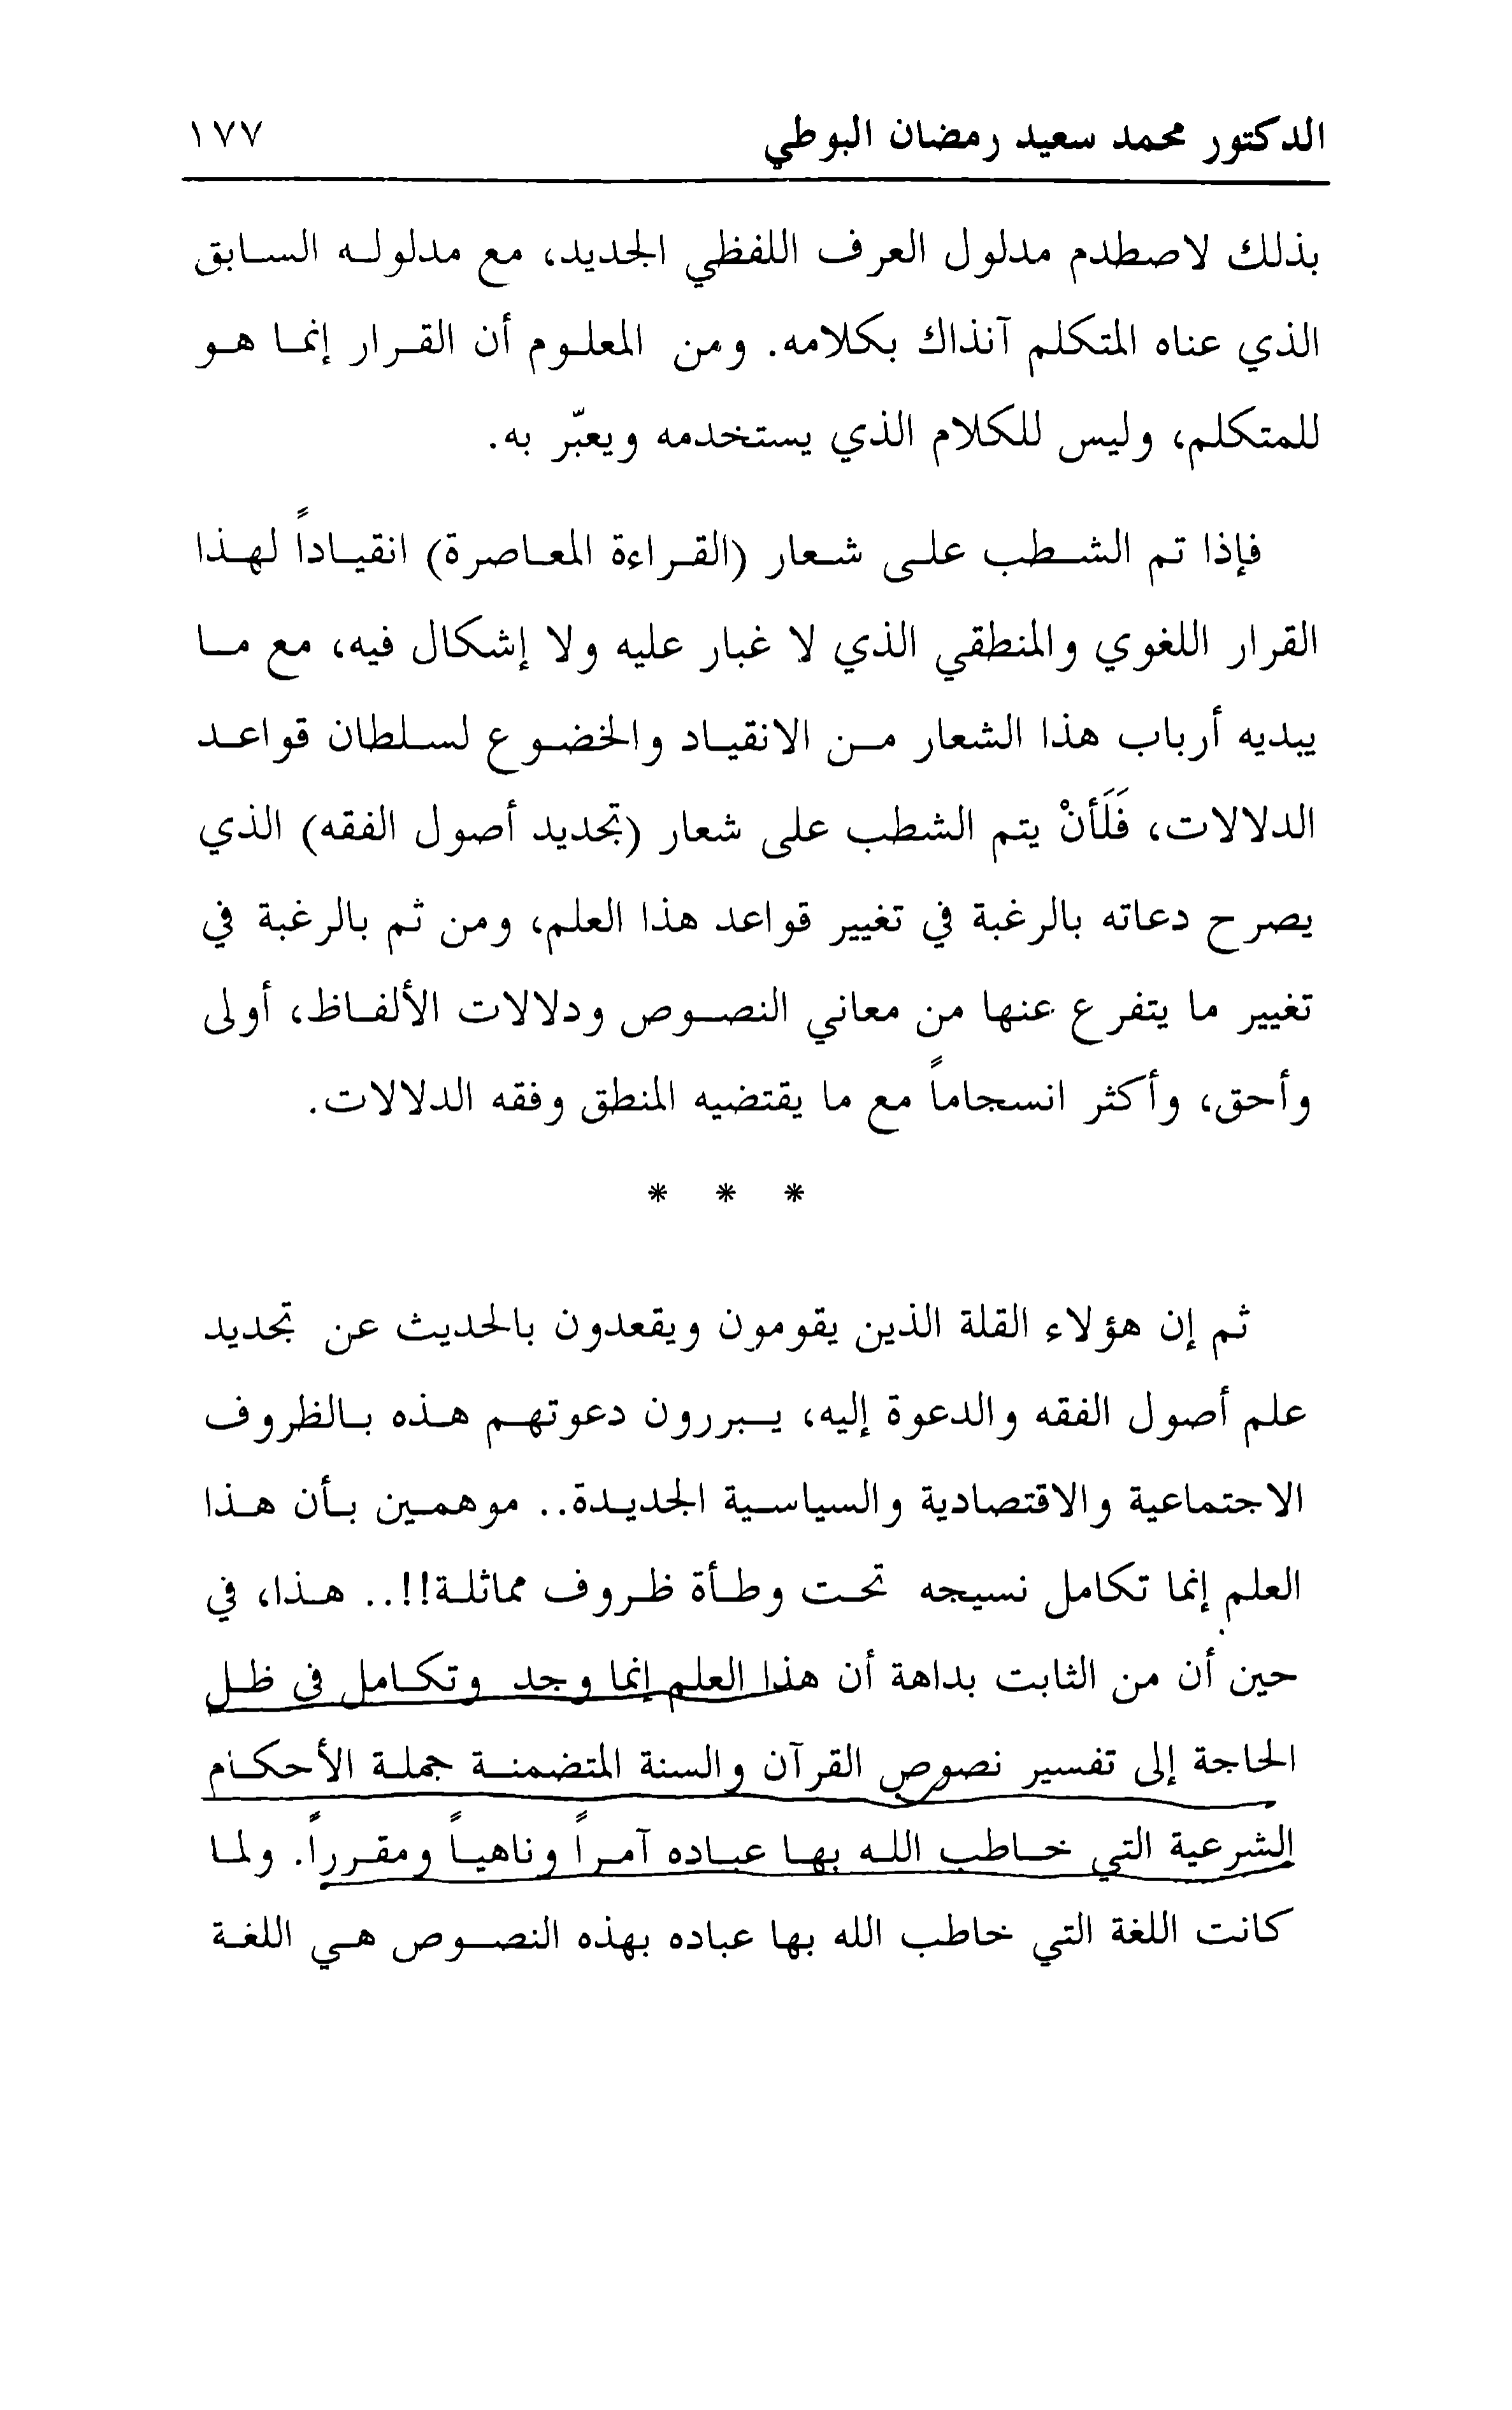 الدكتور محمد سعيد رمضان البوطي ١٧٧
بذلك لاصطدم مدلول العرف اللفظي الجديد، مع مدلوله السابق
الذي عناه المتكلم آنذاك بكلامه. ومن المعلوم أن القرار إنما هو
للمتكلم، وليس للكلام الذي يستخدمه ويعبّر به.
فإذا تم الشطب على شعار (القراءة المعاصرة) انقياداً لهذا
القرار اللغوي والمنطقي الذي لا غبار عليه ولا إشكال فيه، مع ما
يبديه أرباب هذا الشعار من الانقياد والخضوع لسلطان قواعد
الدلالات، فَلَأنْ يتم الشطب على شعار (تجديد أصول الفقه) الذي
يصرح دعاته بالرغبة في تغيير قواعد هذا العلم، ومن ثم بالرغبة في
تغيير ما يتفرع عنها من معاني النصوص ودلالات الألفاظ، أولى
وأحق، وأكثر انسجاماً مع ما يقتضيه المنطق وفقه الدلالات.
* * *
ثم إن هؤلاء القلة الذين يقومون ويقعدون بالحديث عن تجديد
علم أصول الفقه والدعوة إليه، يبررون دعوتهم هذه بالظروف
الاجتماعية والاقتصادية والسياسية الجديدة.. موهمين بأن هذا
العلم إنما تكامل نسيجه تحت وطأة ظروف مماثلة!!.. هذا، في
حين أن من الثابت بداهة أن هذا العلم إنما وجد وتكامل في ظل
الحاجة إلى تفسير نصوص القرآن والسنة المتضمنة جملة الأحكام
الشرعية التي خاطب الله بها عباده آمراً وناهياً ومقرراً. ولما
كانت اللغة التي خاطب الله بها عباده بهذه النصوص هي اللغة